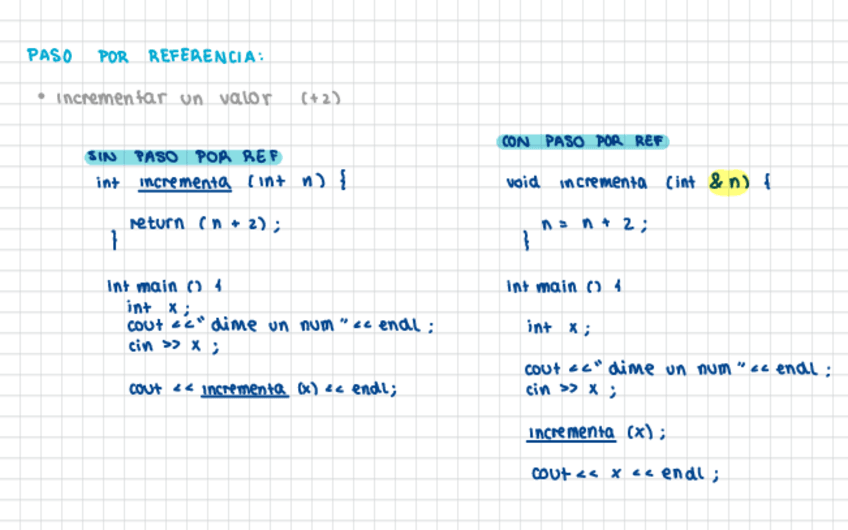 PASO POR REFERENCIA:
• incrementar un valor (+2)
SIN PASO POR REF
int incrementa (int n) {
return (n + 2);
}
Int main () {
int x;
cout <<" dime un num "<< endl;
cin >> x;
cout << incrementa (x) << endl;
CON PASO POR REF
void incrementa (int & n) {
n = n + 2;
}
Int main () {
int x;
cout <<" dime un num "<< endl;
cin >> x;
incrementa (x);
cout << x << endl;